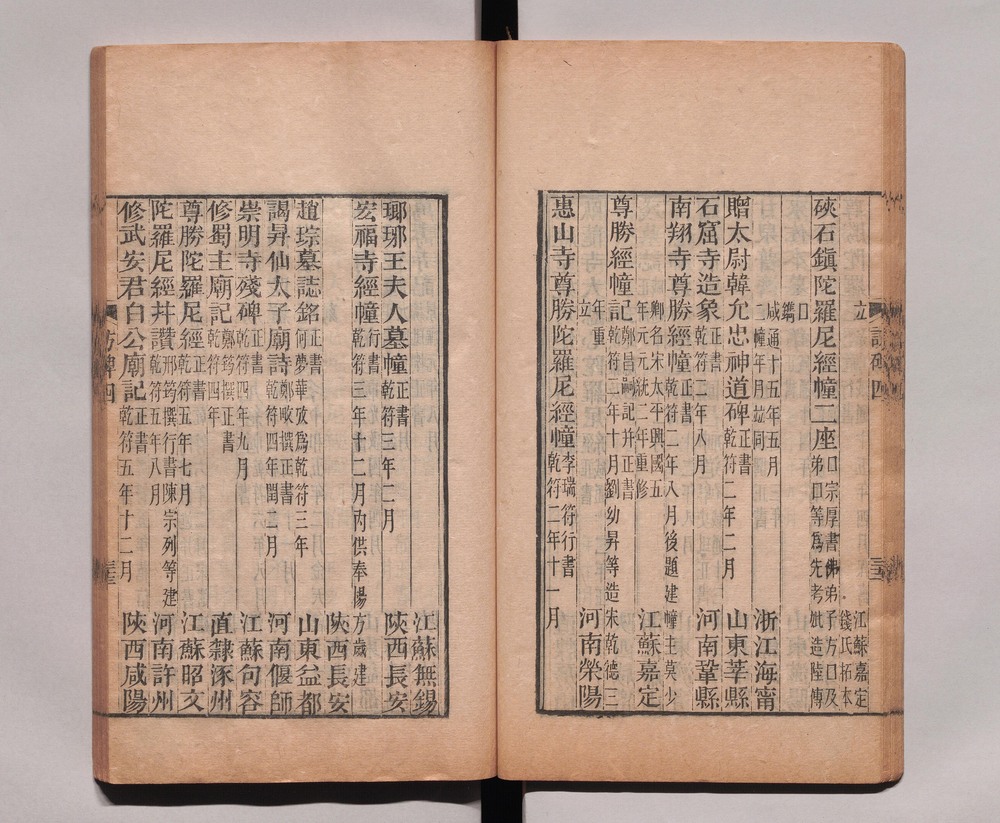 立　江蘇嘉定錢氏拓本
硤石鎮陀羅尼經幢二座　口宗厚書佛弟子方口及弟口等爲先考妣造陸傳
口鐫　咸通十五年五月二幢年月竝同　浙江海甯
贈太尉韓允忠神道碑　正書乾符二年二月　山東莘縣
石窟寺造象　正書乾符二年八月　河南鞏縣
南翔寺尊勝經幢　正書乾符二年八月後題建幢主莫少
卿名宋太平興國五年元元統二年重修　江蘇嘉定
尊勝經幢記　鄭昌嗣記并正書乾符三年十月劉幼昇等造宋乾德三
年重立　河南滎陽
惠山寺尊勝陀羅尼經幢　李瑞符行書乾符二年十一月
訪碑四
江蘇無錫
瑯琊王夫人墓幢　正書乾符三年二月　陝西長安
宏福寺經幢　行書乾符三年十二月內供奉楊方歲建
陝西長安
趙琮墓誌銘　正書何夢華攷爲乾符三年　山東益都
謁昇仙太子廟詩　鄭畋撰正書乾符四年閏二月　河南偃師
崇明寺殘碑　正書乾符四年九月　江蘇句容
修蜀主廟記　鄭筠撰正書乾符四年　直隸涿州
尊勝陀羅尼經　正書乾符五年七月　江蘇昭文
陀羅尼經井讚　邢筠撰行書陳宗列等建乾符五年八月　河南許州
修武安君白公廟記　正書乾符五年十二月　陝西咸陽
訪碑四